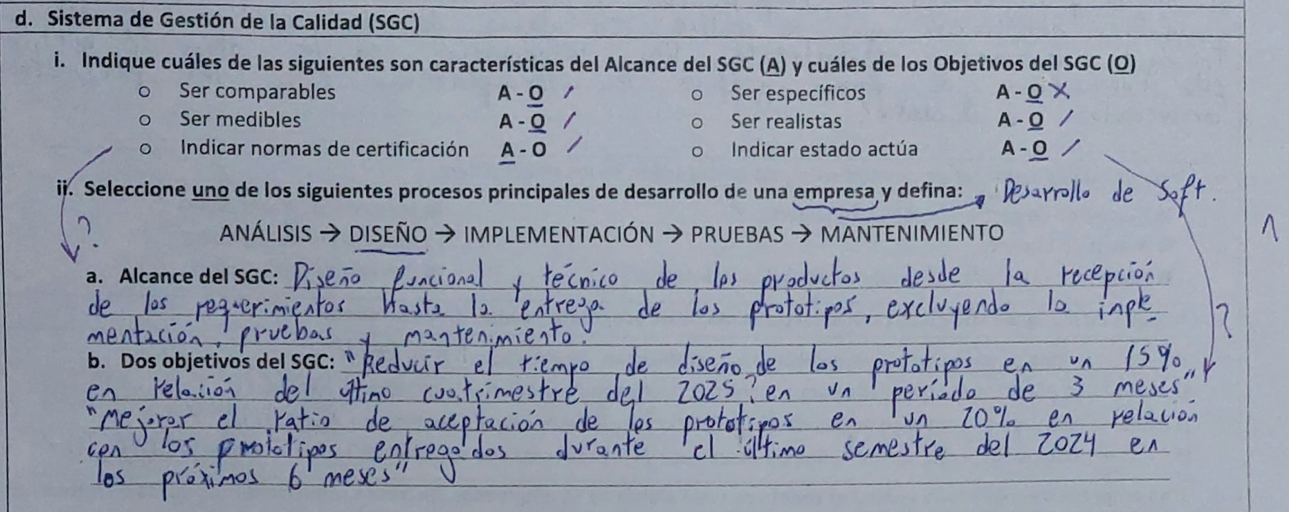 d. Sistema de Gestión de la Calidad (SGC)
i. Indique cuáles de las siguientes son características del Alcance del SGC (A) y cuáles de los Objetivos del SGC (O)
○ Ser comparables A - O / ○ Ser específicos A - O X
○ Ser medibles A - O / ○ Ser realistas A - O /
○ Indicar normas de certificación A - O / ○ Indicar estado actúa A - O /
ii. Seleccione uno de los siguientes procesos principales de desarrollo de una empresa y defina: Desarrollo de Soft.
?
ANÁLISIS → DISEÑO → IMPLEMENTACIÓN → PRUEBAS → MANTENIMIENTO
a. Alcance del SGC: Diseño funcional y técnico de los productos desde la recepción
de los requerimientos hasta la entrega de los prototipos, excluyendo la inple
mentación, pruebas y mantenimiento.
?
b. Dos objetivos del SGC: "Reducir el tiempo de diseño de los prototipos en un 15%
en relación del último cuatrimestre del 2025 en un período de 3 meses"
"Mejorar el ratio de aceptación de los prototipos en un 20% en relación
con los prototipos entregados durante el último semestre del 2024 en
los próximos 6 meses"